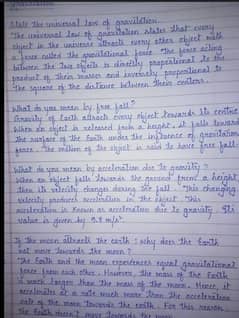 Gravitation
State the universal law of gravitation
The universal law of gravitation states that every
object in the universe attracts every other object with
a force called the gravitational force. The force acting
between the two objects is directly proportional to the
product of their masses and inversely proportional to
the square of the distance between their centers.
What do you mean by free fall?
Gravity of Earth attracts every object towards its centre
When an object is released from a height, it falls towards
the surface of the Earth under the influence of gravitational
force. The motion of the object is said to have free fall.
What do you mean by acceleration due to gravity?
When an object falls towards the ground from a height
then its velocity changes during the fall. This changing
velocity produces acceleration in the object. This
acceleration is known as acceleration due to gravity. Its
value is given by 9.8 m/s².
If the moon attracts the earth, why does the Earth
not move towards the moon?
The Earth and the moon experiences equal gravitational
force from each other. However, the mass of the Earth
is much larger than the mass of the moon. Hence, it
accelerates at a rate much more than the acceleration
rate of the moon towards the Earth. For this reason,
the Earth doesn't move towards the moon